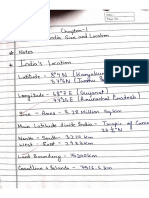 Chapter-1
India Size and Location
Notes
India's Location
Latitude - 8°4'N (Kanyakumari)
37°6'N
Longitude - 68°7'E (Gujarat)
97°25'E (Arunachal Pradesh)
Size - Area - 3.28 Million Sq km
Main Latitude divide India - Tropic of Cancer
North - South - 3214 km
West - East -
Land Boundary - 15200 km
Coastline & Islands - 7516.6 km